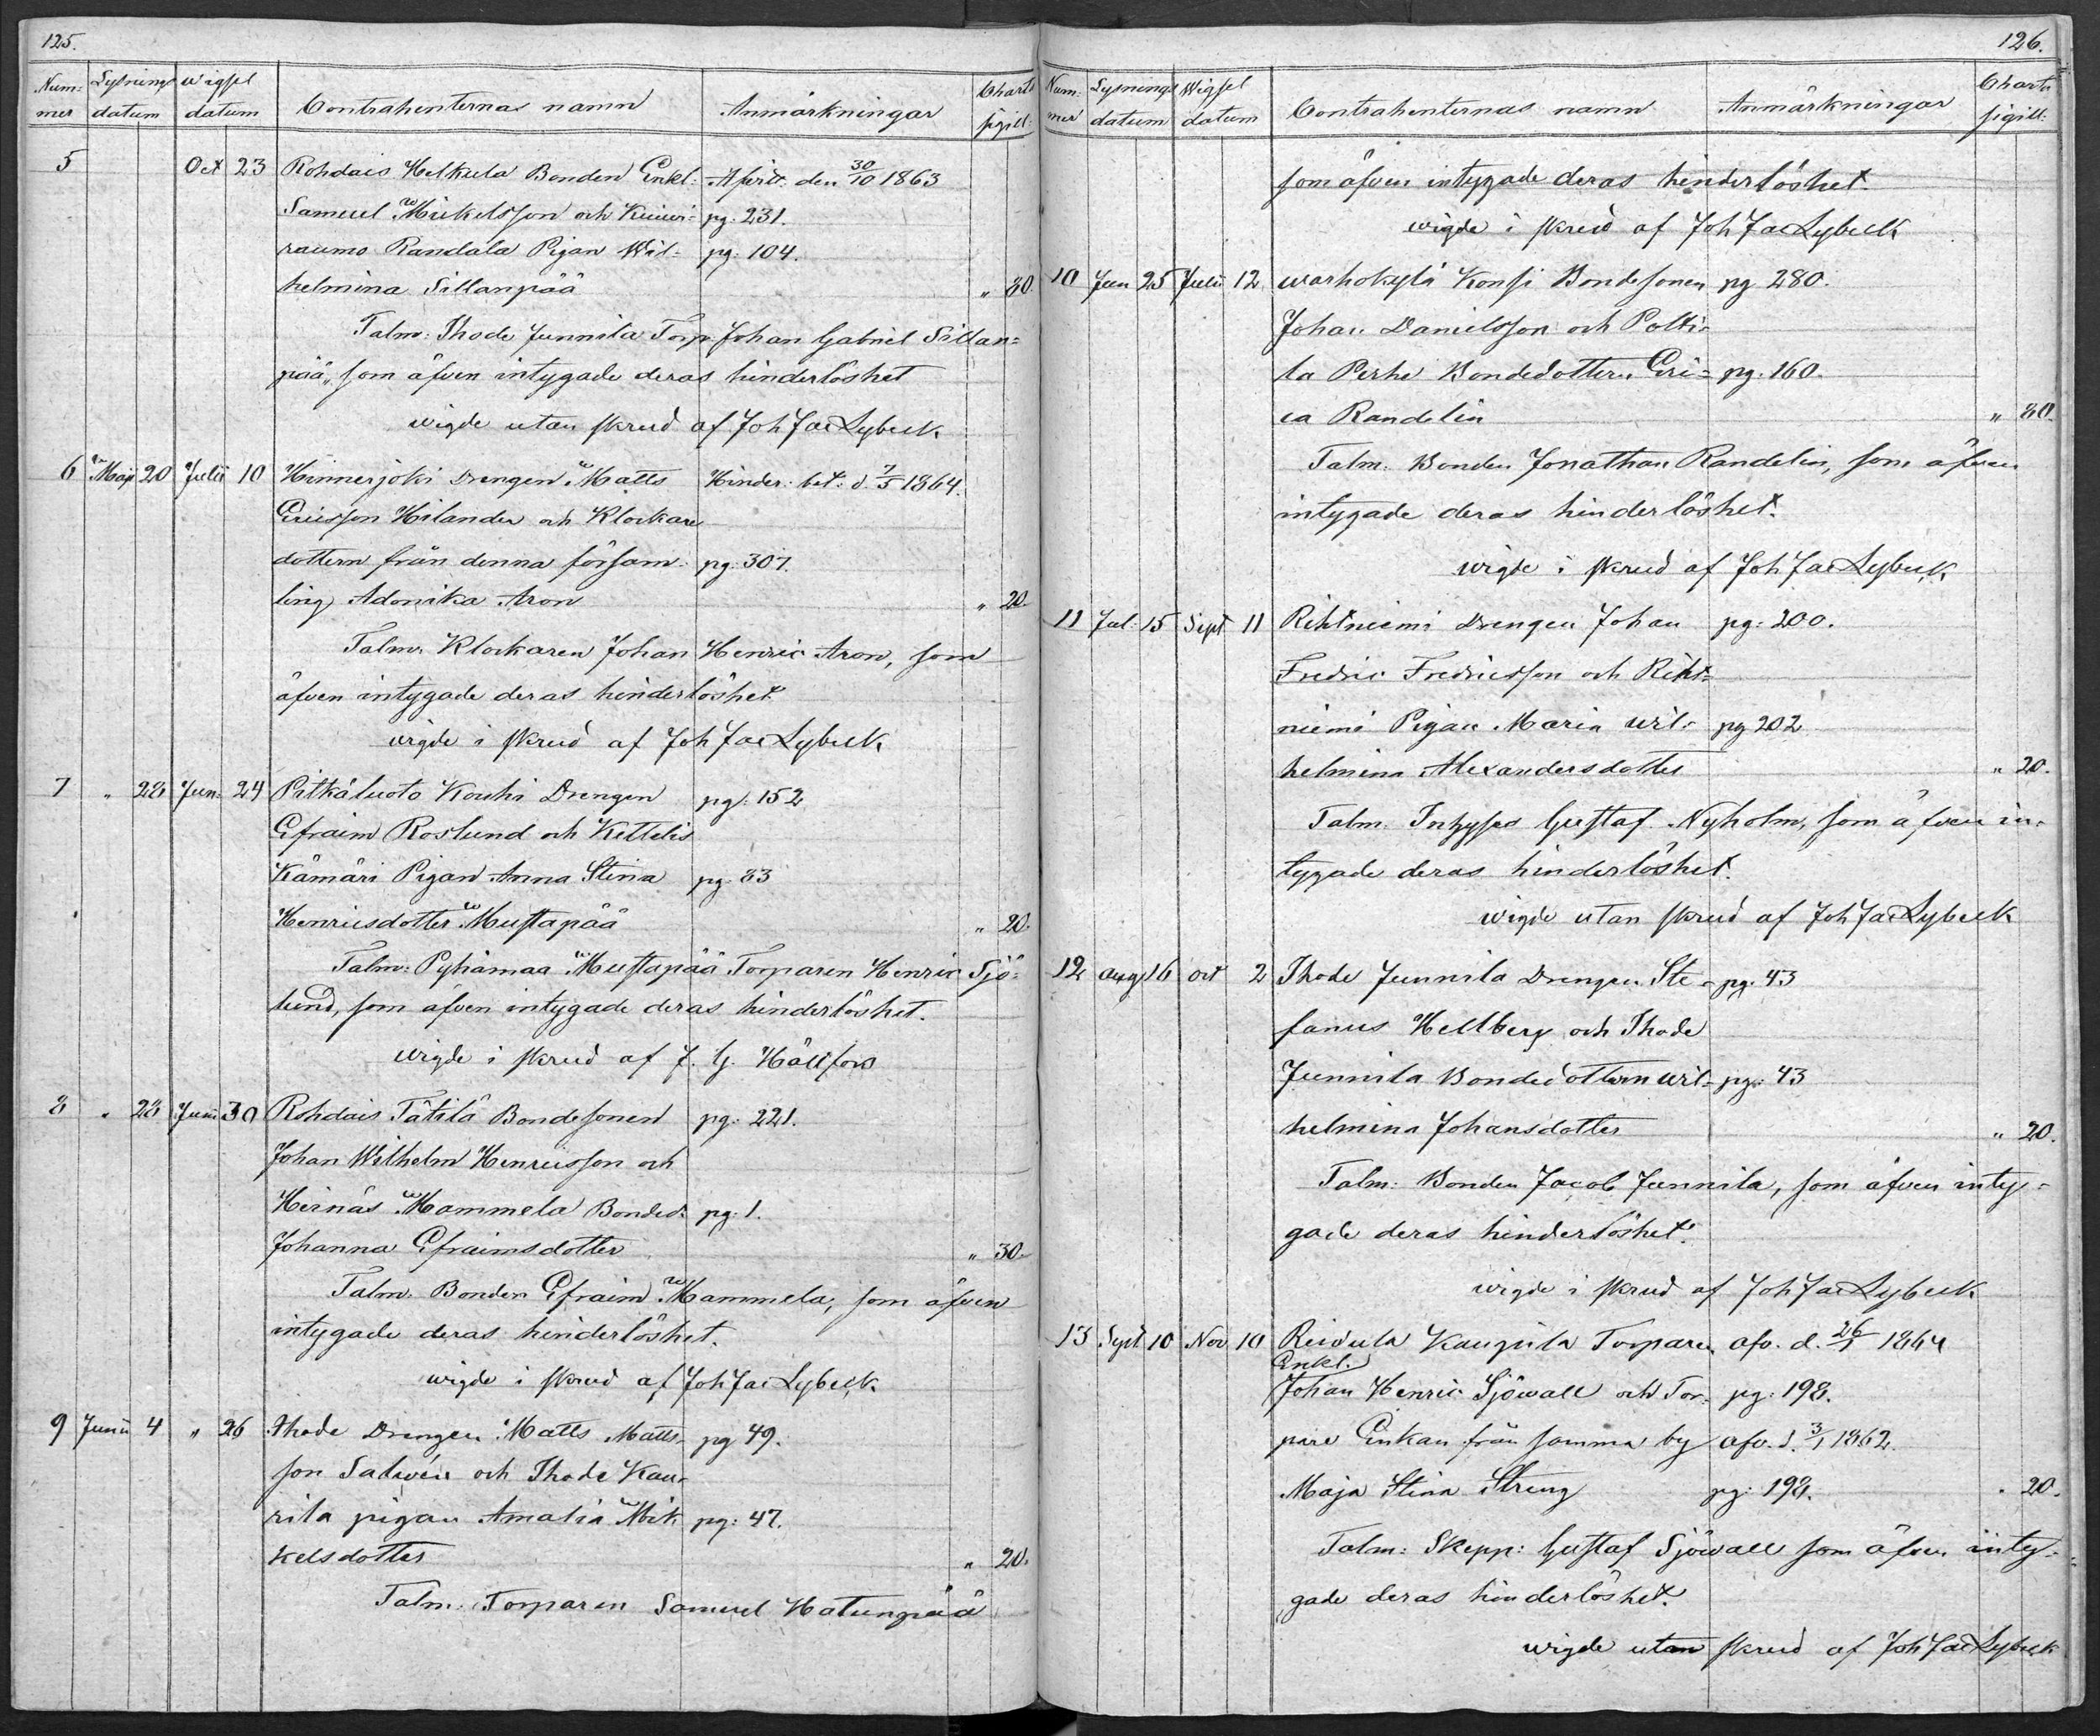 125.
Num-mer Lysnings datum Wigsel datum Contrahenternas namn Anmärkningar Charta sigill:
5 Oct 23 Rohdais Helkula Bonden Enkl: Afvit. den 30/10 1863
Samuel Mickelsson och Kuiwi- pg: 231.
raumo Randala Pigan Wil- pg: 104.
helmina Sillanpää " 80
Talm: Ihode Junnila Torp. Johan Gabriel Sillan=
pää, som äfven intygade deras hinderlöshet
wigde utan skrud af Joh Jac Lybeck
6 Maji 20 Julii 10 Hinnerjoki Drengen Matts Hinder: bet: d. 7/5 1864.
Ericsson Hilander och Klockare
dottern från denna försam- pg: 307.
ling Adonika Aron " 20.
Talm: Klockaren Johan Henric Aron, som
äfven intygade deras hinderlöshet
wigde i skrud af Joh Jac Lybeck
7 " 28 Jun: 24 Pitkäluoto Kouhi Drengen pg: 152
Efraim Roslund och Kettelis
Kämäri Pigan Anna Stina pg: 83
Henricsdotter Mustapää " 20.
Talm: Pyhämaa Mustapää Torparen Henric Sjö-
lund, som äfven intygade deras hinderlöshet.
wigde i skrud af J. G. Hällfors
8 " 28 Junii 30 Rohdais Tätilä Bondesonen pg: 221.
Johan Wilhelm Henricsson och
Heinäs Mammela Bonded: pg: 1.
Johanna Efraimsdotter " 30.
Talm: Bonden Efraim Mammela, som äfven
intygade deras hinderlöshet.
wigde i skrud af Joh Jac Lybeck
9 Junii 4 " 26 Ihode Drengen Matts Matts- pg 49.
son Salwén och Ihode Kau-
rila pigan Amalia Mik- pg: 47.
kelsdotter " 20.
Talm: Torparen Samuel Hatunpää
126.
Num-mer Lysnings datum Wigsel datum Contrahenternas namn Anmärkningar Charta sigill:
som äfven intygade deras hinderlöshet.
wigde i skrud af Joh Jac Lybeck
10 Jun 25 Julii 12 warhokylä Konsi Bondesonen pg 280.
Johan Danielsson och Polti-
la Perhe Bondedottern Eri- pg. 160.
ca Randelin " 80.
Talm: Bonden Jonathan Randelin, som äfven
intygade deras hinderlöshet.
wigde i skrud af Joh Jac Lybeck
11 Jul: 15 Sept 11 Rihtniemi Drengen Johan pg: 200.
Fredric Fredricsson och Riht-
niemi Pigan Maria wil- pg 202
helmina Alexandersdotter " 20.
Talm. Inhyses Gustaf Nyholm, som äfven in-
tygade deras hinderlöshet.
wigde utan skrud af Joh Jac Lybeck
12 aug 16 oct 2 Ihode Junnila Drengen Ste- pg: 43
fanus Hellberg och Ihode
Junnila Bondedottern wil- pg: 43
helmina Johansdotter " 20.
Talm: Bonden Jacob Junnila, som äfven inty-
gade deras hinderlöshet.
wigde i skrud af Joh Jac Lybeck
13 Sept 10 Nov 10 Reidula Kaupila Torparen afv. d. 26/1 1864
Enkl.
Johan Henric Sjöwall och Tor- pg: 198.
pare Enkan från samma by afv. d. 3/1 1862.
Maja Stina Streng pg: 198. " 20.
Talm: Skepp: Gustaf Sjöwall som äfven inty-
gade deras hinderlöshet.
wigde utan skrud af Joh Jac Lybeck